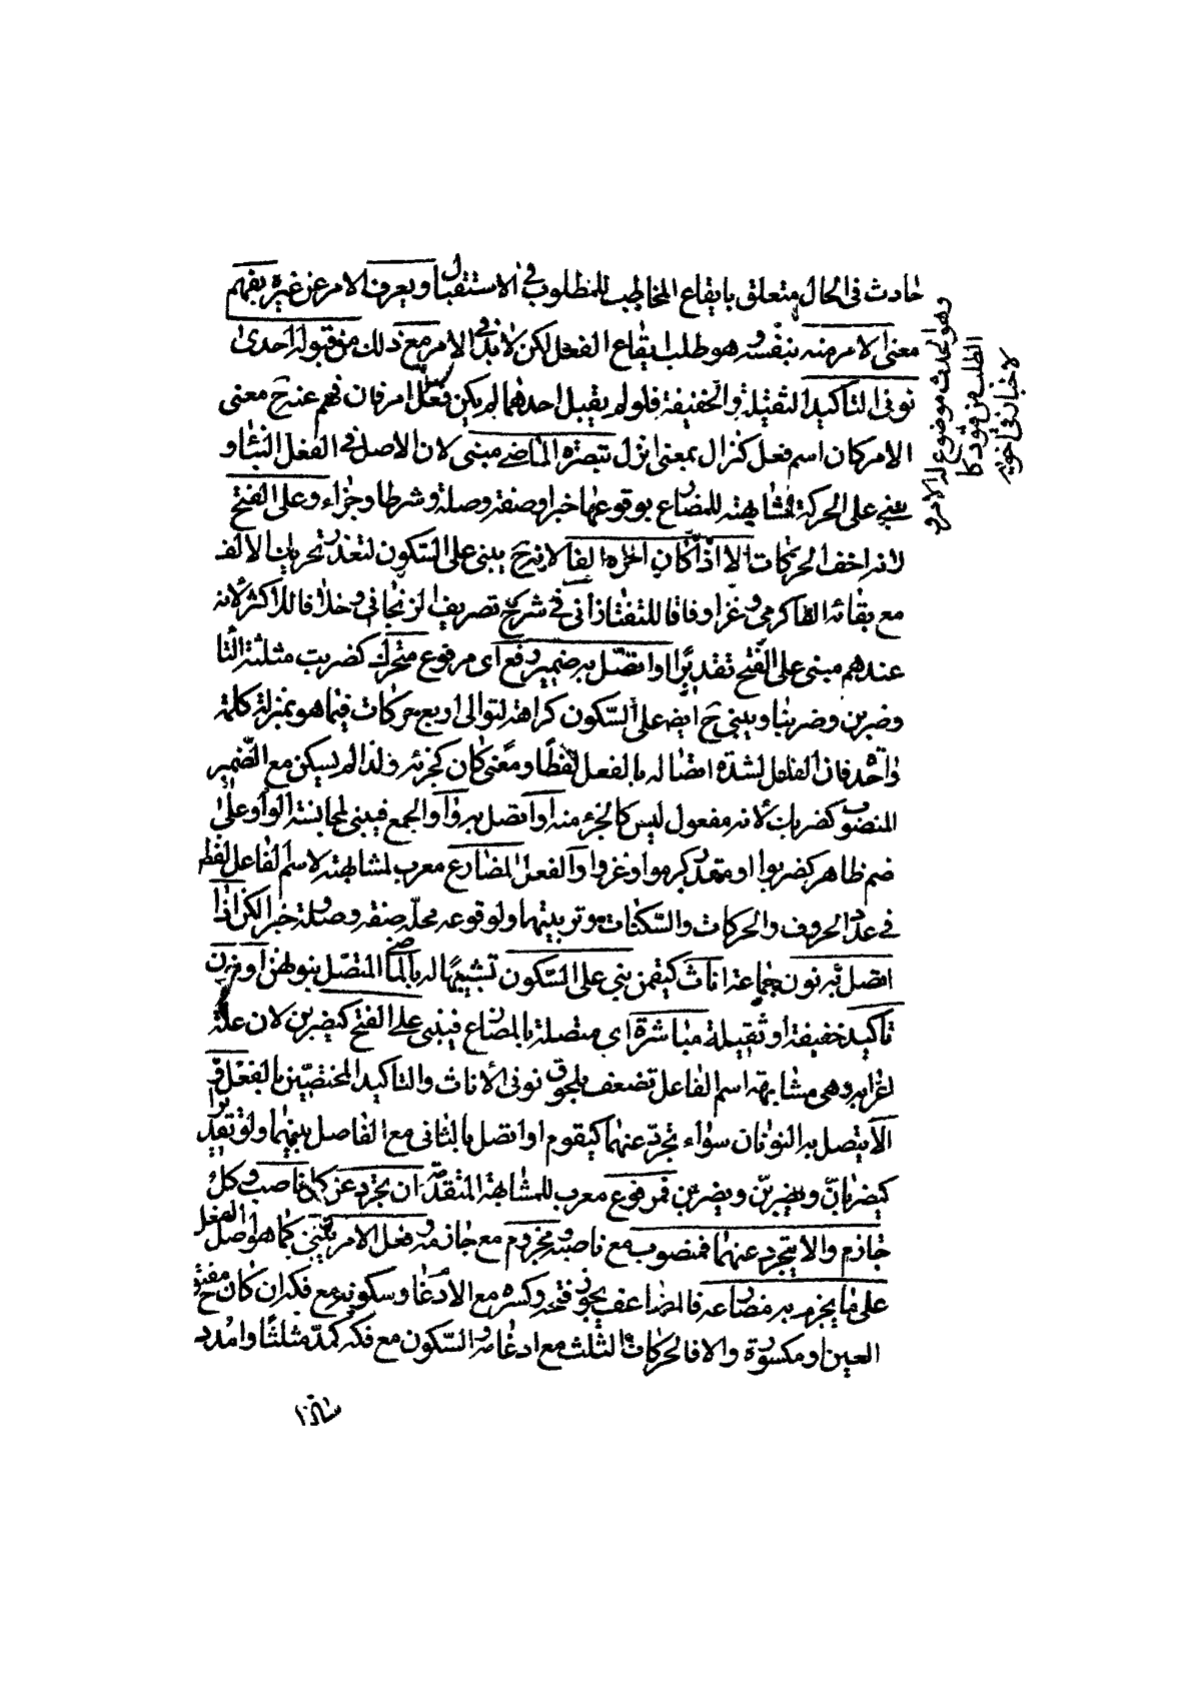 حادث في الحال متعلق بايقاع المخاطب للمطلوب في الاستقبال ويعرف الامر عن غيره بفهم
معنى الامر منه بنفسه وهو طلب ايقاع الفعل لكن لا بد في الامر مع ذلك من قبوله احدى
نوني التاكيد الثقيلة والخفيفة فلو لم يقبل احدهما لم يكن فعل امر فان فهم عنه ح معنى
الامر كان اسم فعل كنزال بمعنى انزل تبصره الماضي مبنى لان الاصل في الفعل البناء و
بني على الحركة لمشابهته للمضارع بوقوعهما خبرا وصفة وصلة وشرطا وجزاء وعلى الفتح
لانه اخف الحركات الا اذا كان اخره الفا لانه ح يبنى على السكون لتعذر تحريك الالف
مع بقائه الفا كرمى وغزا وفاقا للتفتازاني في شرح تصريف الزنجاني وخلافا للاكثر لانه
عندهم مبنى على الفتح تقديرا او اتصل به ضمير رفع اى مرفوع متحرك كضربت مثلثة التا
وضربن وضربنا ويبنى ح ايض على السكون كراهة لتوالى اربع حركات فيما هو بمنزلة كلمة
واحده فان الفاعل لشدة اتصاله بالفعل لفظا ومعنى كان كجزئه ولذا لم يسكن مع الضمير
المنصوب كضربك لانه مفعول ليس كالجزء منه او اتصل به واو الجمع فيبنى لمجانسة الواو على
ضم ظاهر كضربوا او مقدر كرموا وغزوا والفعل المضارع معرب لمشابهته لاسم الفاعل لفظا
في عدد الحروف والحركات والسكنات وترتيبهما ولوقوعه محله صفة وصلة خبرا لكن اذا
اتصل به نون جماعة اناث كيقمن بني على السكون تشبيها له بالماضي المتصل بنونهن او نون
تاكيد خفيفة او ثقيلة مباشرة اي متصلة بالمضارع فيبنى على الفتح كيضربن لان علة
اعرابه وهى مشابهة اسم الفاعل تضعف بلحوق نوني الاناث والتاكيد المختصتين بالفعل و
الا يتصل به النونان سواء تجرد عنهما كيقوم او اتصل بالثانى مع الفاصل بينهما ولو تقديرا
كيضربان ويضربن ويضربن فمرفوع معرب للمشابهة المتقدمة ان تجرد عن كل ناصب وكل
جازم والا يتجرد عنهما فمنصوب مع ناصبه ومجزوم مع جازمه وفعل الامر يبنى كما هو اصل الفعل
على ما يجزم به مضارعه فالمضاعف يجوز فتحه وكسره مع الادغام وسكونه مع فكه ان كان ح مفتوح
العين او مكسورة والا فالحركات الثلث مع ادغامه والسكون مع فكه كمد مثلثا وامدد
وهو الحدث موضوع له الامر و
الطلب من قيود كا
لاخبار في اخويه